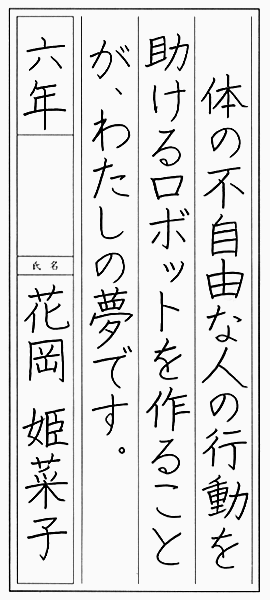 体の不自由な人の行動を
助けるロボットを作ること
が、わたしの夢です。
六年
氏名
花岡 姫菜子